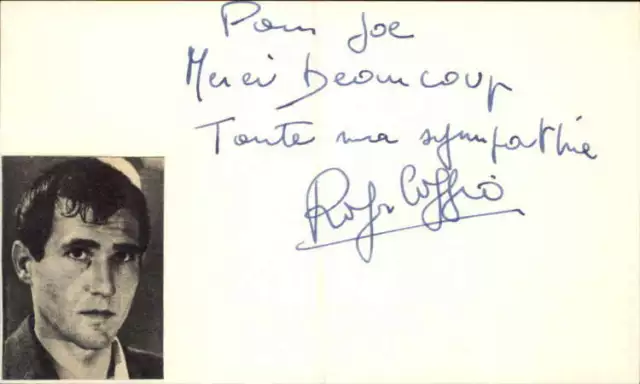 Pour Joe
Merci Beaucoup
Toute ma sympathie
Roger Coggio